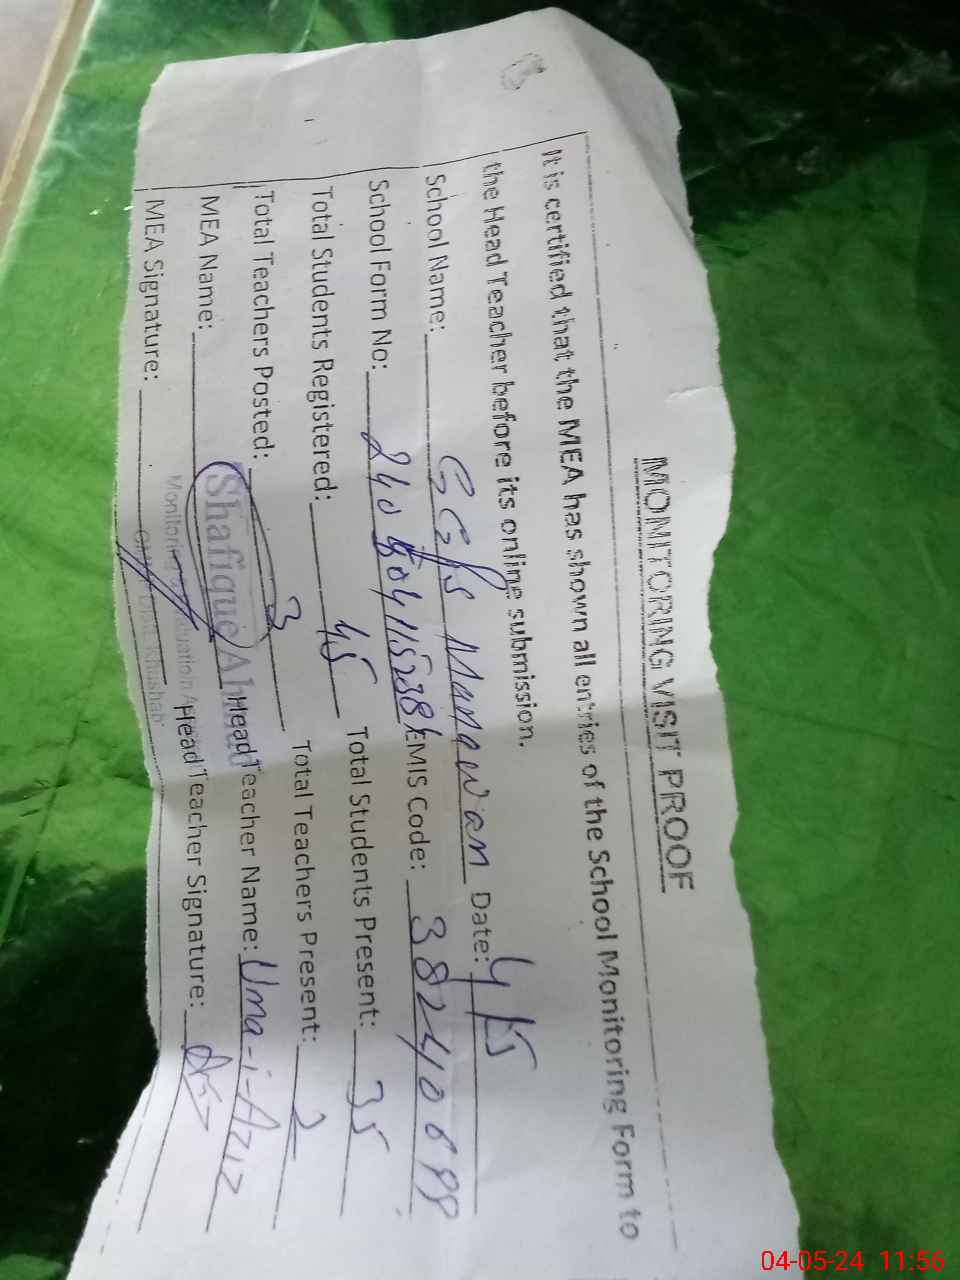 MONITORING VISIT PROOF
It is certified that the MEA has shown all entries of the School Monitoring Form to
the Head Teacher before its online submission.
School Name: GGPS Date: 4/5
School Form No: EMIS Code:
Total Students Registered: 45 Total Students Present: 35
Total Teachers Posted: 3 Total Teachers Present: 2
MEA Name: Shafique Ahmad Head Teacher Name: Uma-i-Aziz
MEA Signature: Head Teacher Signature:
Monitoring
04-05-24 11:56